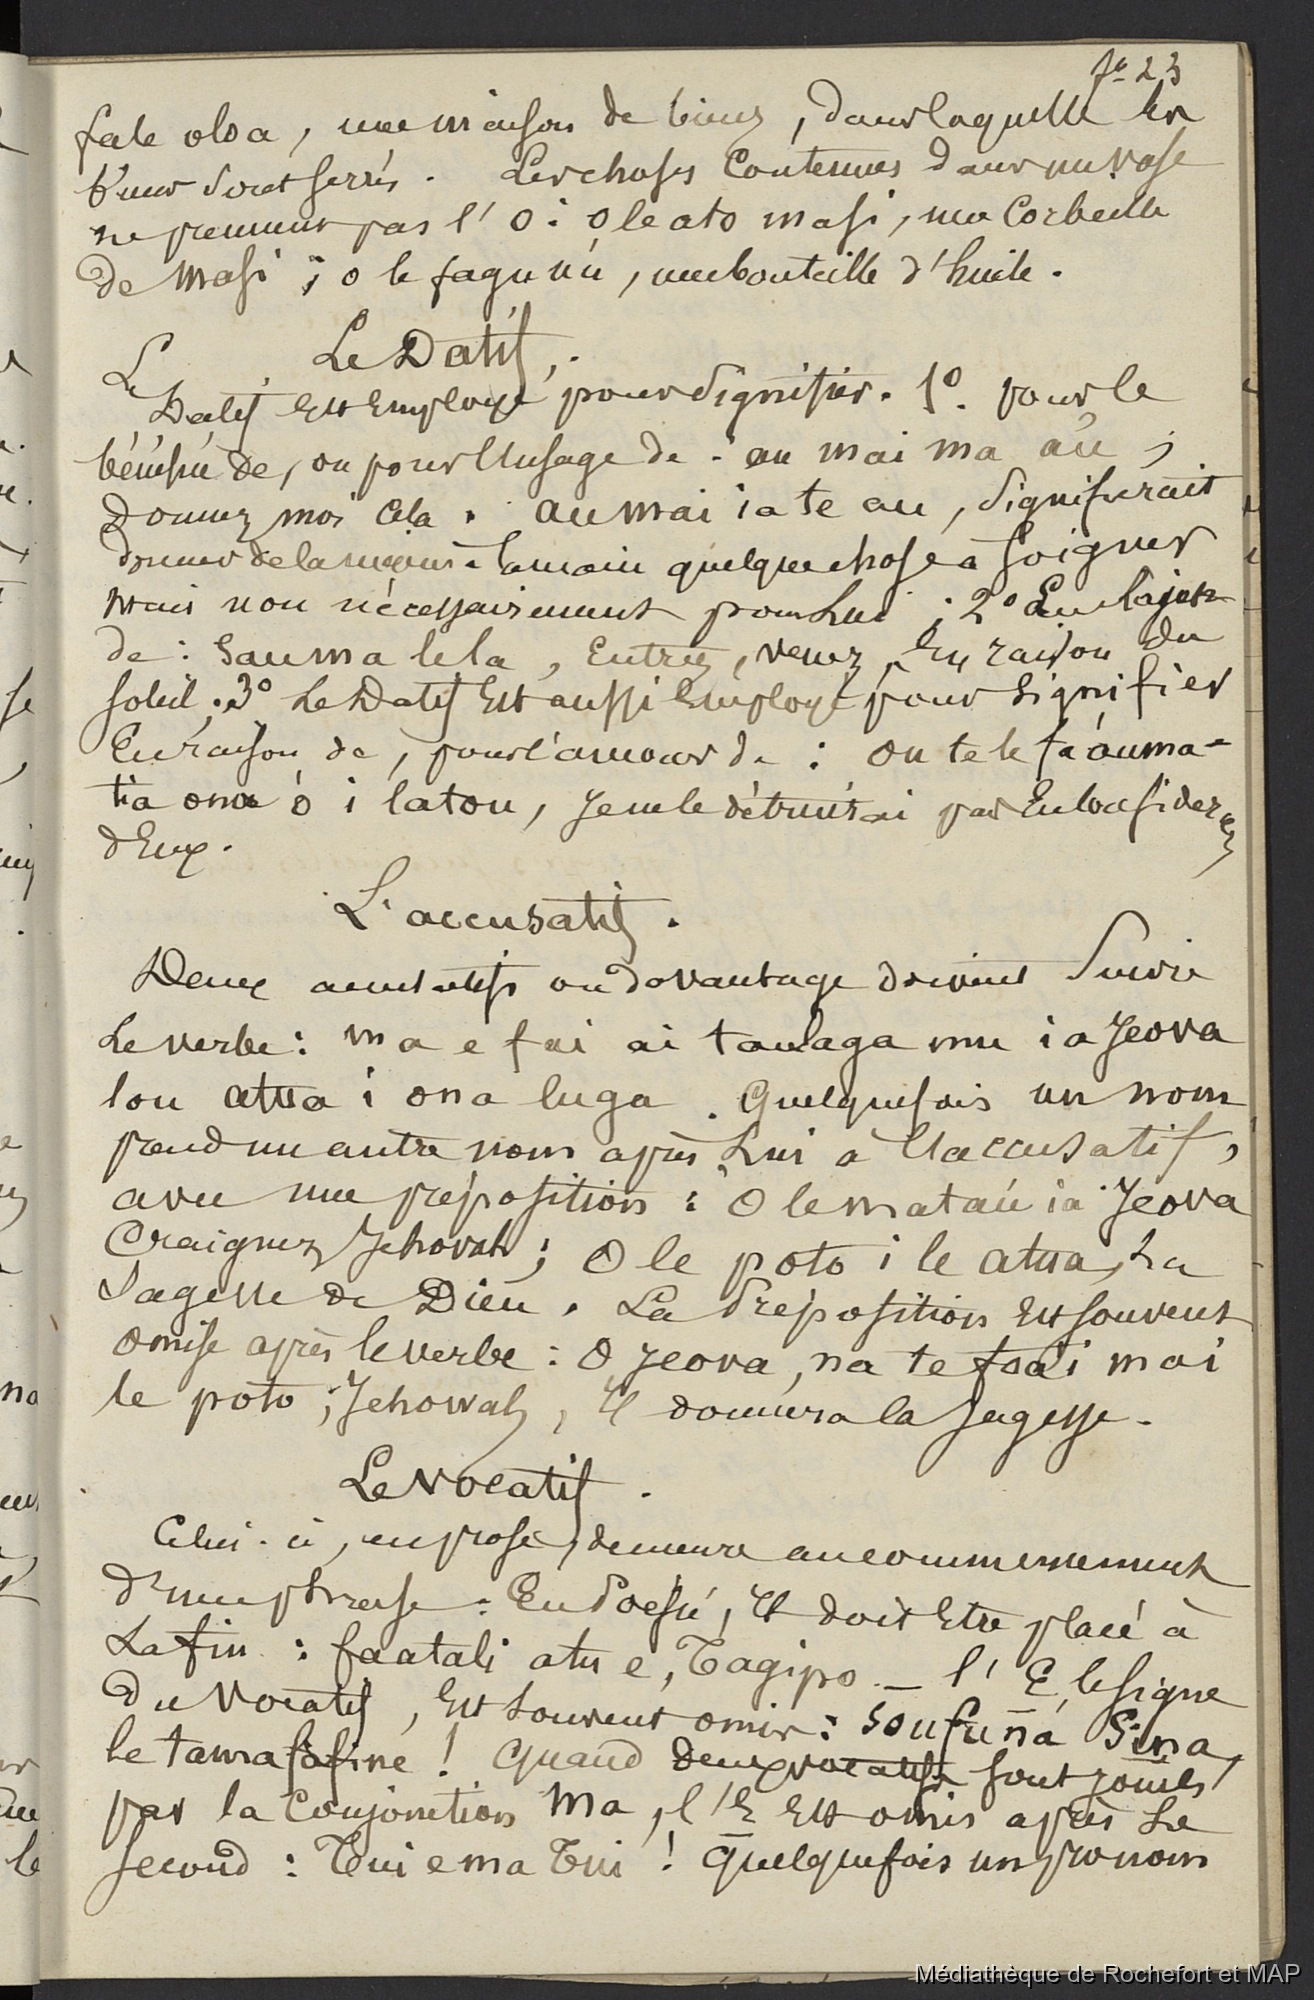 fo 23
fale oloa, une maison de biens, dans laquelle les
biens sont serrés. Les choses contenues dans un vase
ne prennent pas l'o : o le ato masi, une corbeille
de masi ; o le fagu úu, une bouteille d'huile.
Le Datif.
Le
Datif est employé pour signifier. 1º. pour le
bénéfice de, ou pour l'usage de - au mai ma aú ;
Donnez moi cela. au mai ia te au, signifierait
donner de la main à la main quelque chose à soigner
mais non nécessairement pour lui ; 2º
de : sau ma le la, Entrez, venez, en raison du
soleil ; 3º Le Datif est aussi employé pour signifier
En raison de, pour l'amour de : ou te le faáuma-
tia ona o i latou, je ne le détruirai pas en
d'Eux.
L'accusatif.
Deux accusatifs ou davantage doivent suivre
le verbe : ma e fai ai taulaga mu ia Jeova
lou atua i ona luga. Quelquefois un nom
prend un autre nom après lui à l'accusatif,
avec une préposition : O le mataú ia Jeova
Craignez Jehovah ; O le poto i le atua, La
sagesse de Dieu. La Préposition est souvent
omise après le verbe : O Jeova, na te foai mai
le poto ; Jehowah, Il donnera la sagesse.
Le vocatif.
Celui-ci, en prose, demeure au commencement
d'une phrase. En Poésie, Il doit Etre placé à
La fin : faatali atu e, Tagipo _ l'E, le signe
du Vocatif, est souvent omis : sou funa Sina,
le tama fafine ! Quand deux vocatifs sont joints
par la Conjonction Ma, l'E est omis après Le
second : Tui e ma Tui ! Quelquefois un pronom
Médiathèque de Rochefort et MAP